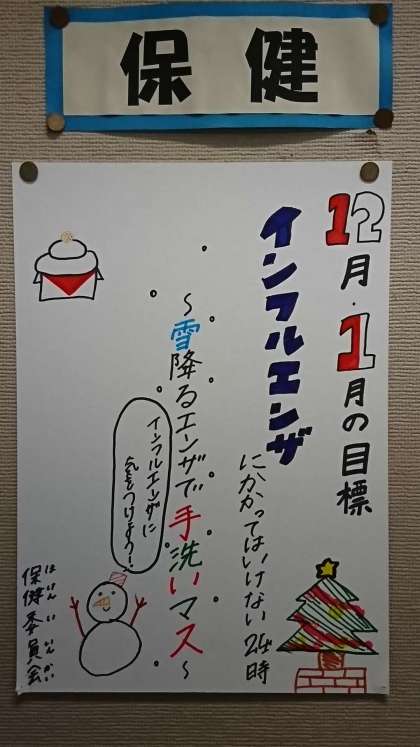 保健
12月・1月の目標
インフルエンザ
にかかってはいけない24時
～雪降るエンザで手洗いマス～
インフルエンザに
気をつけよう！
保健委員会
ほけんいいんかい